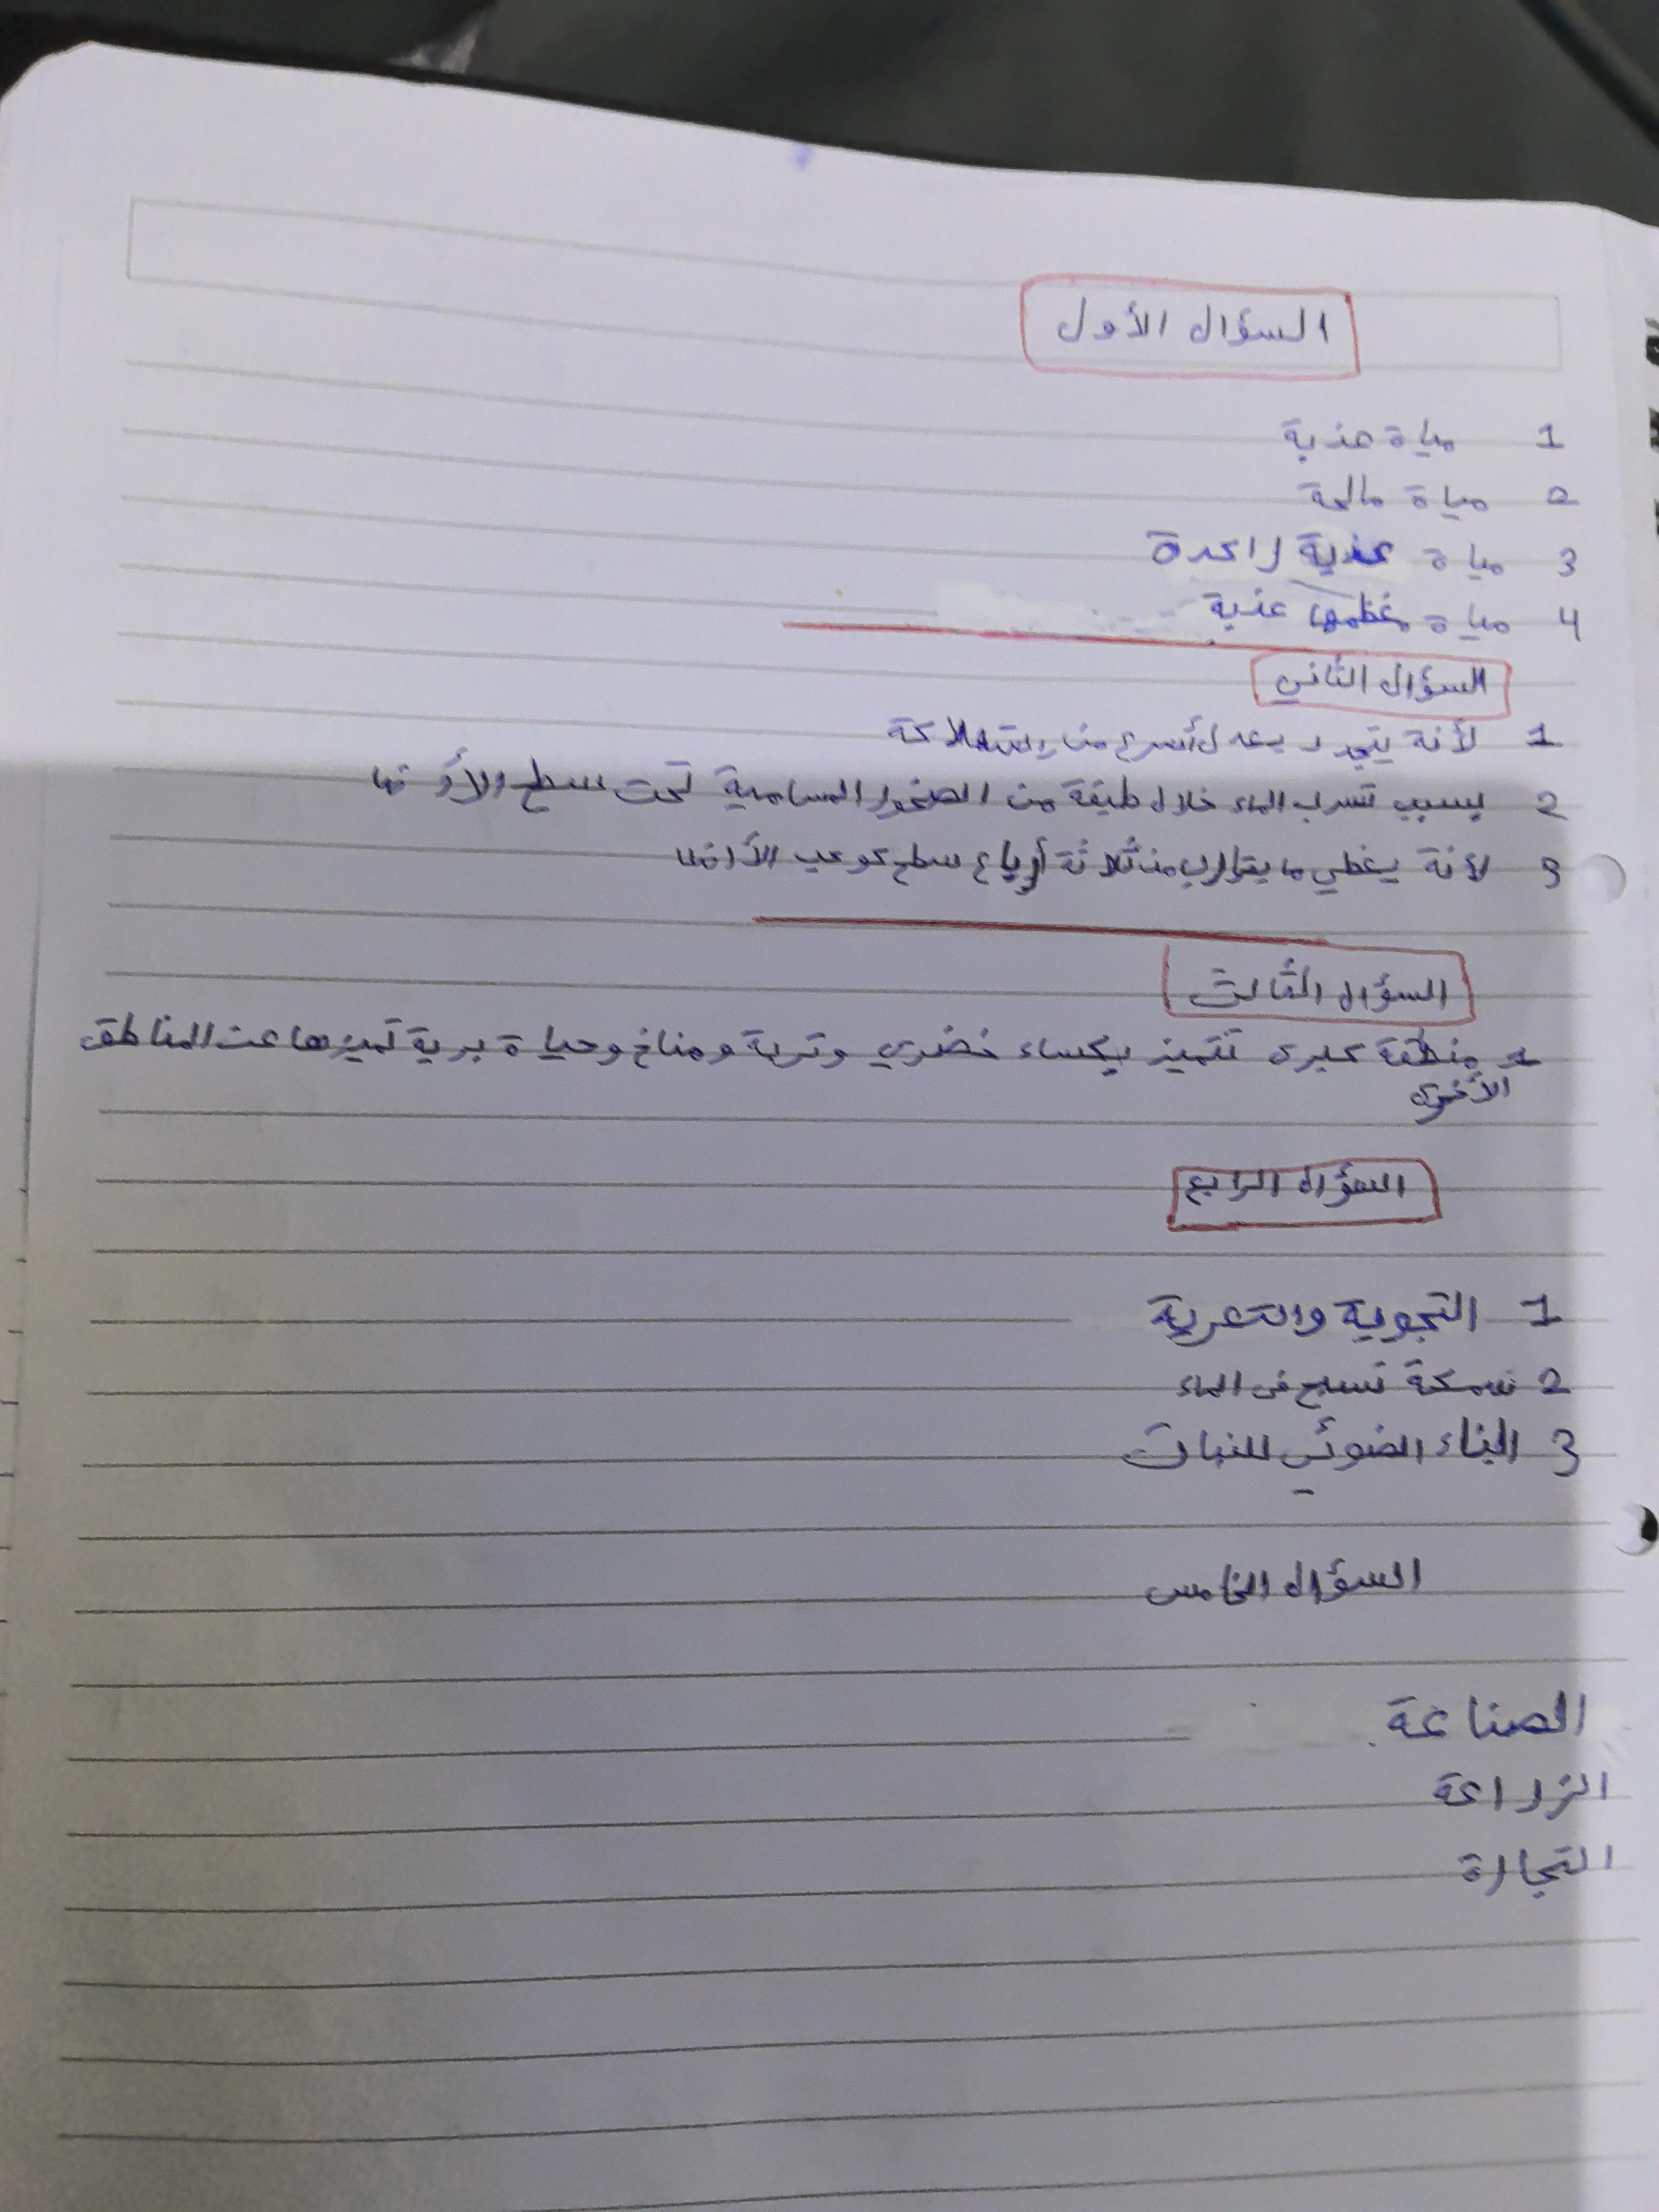 السؤال الأول
1 مياة عذبة
2 مياة مالحة
3 مياة عذبة راكدة
4 مياة معظمها عذبة
السؤال الثاني
1 لأنة يتجدد بمعدل أسرع من إستهلاكة
2 بسبب تسرب الماء خلال طبقة من الصخور المسامية تحت سطح الأرض
3 لأنة يغطي ما يقارب من ثلاثة أرباع سطح كوكب الأرض
السؤال الثالث
1 منطقة كبرى تتميز بكساء خضري وتربة ومناخ وحياة برية تميزها عن المناطق
الأخرى
السؤال الرابع
1 التجوية والتعرية
2 سمكة تسبح في الماء
3 البناء الضوئي للنبات
السؤال الخامس
الصناعة
الزراعة
التجارة